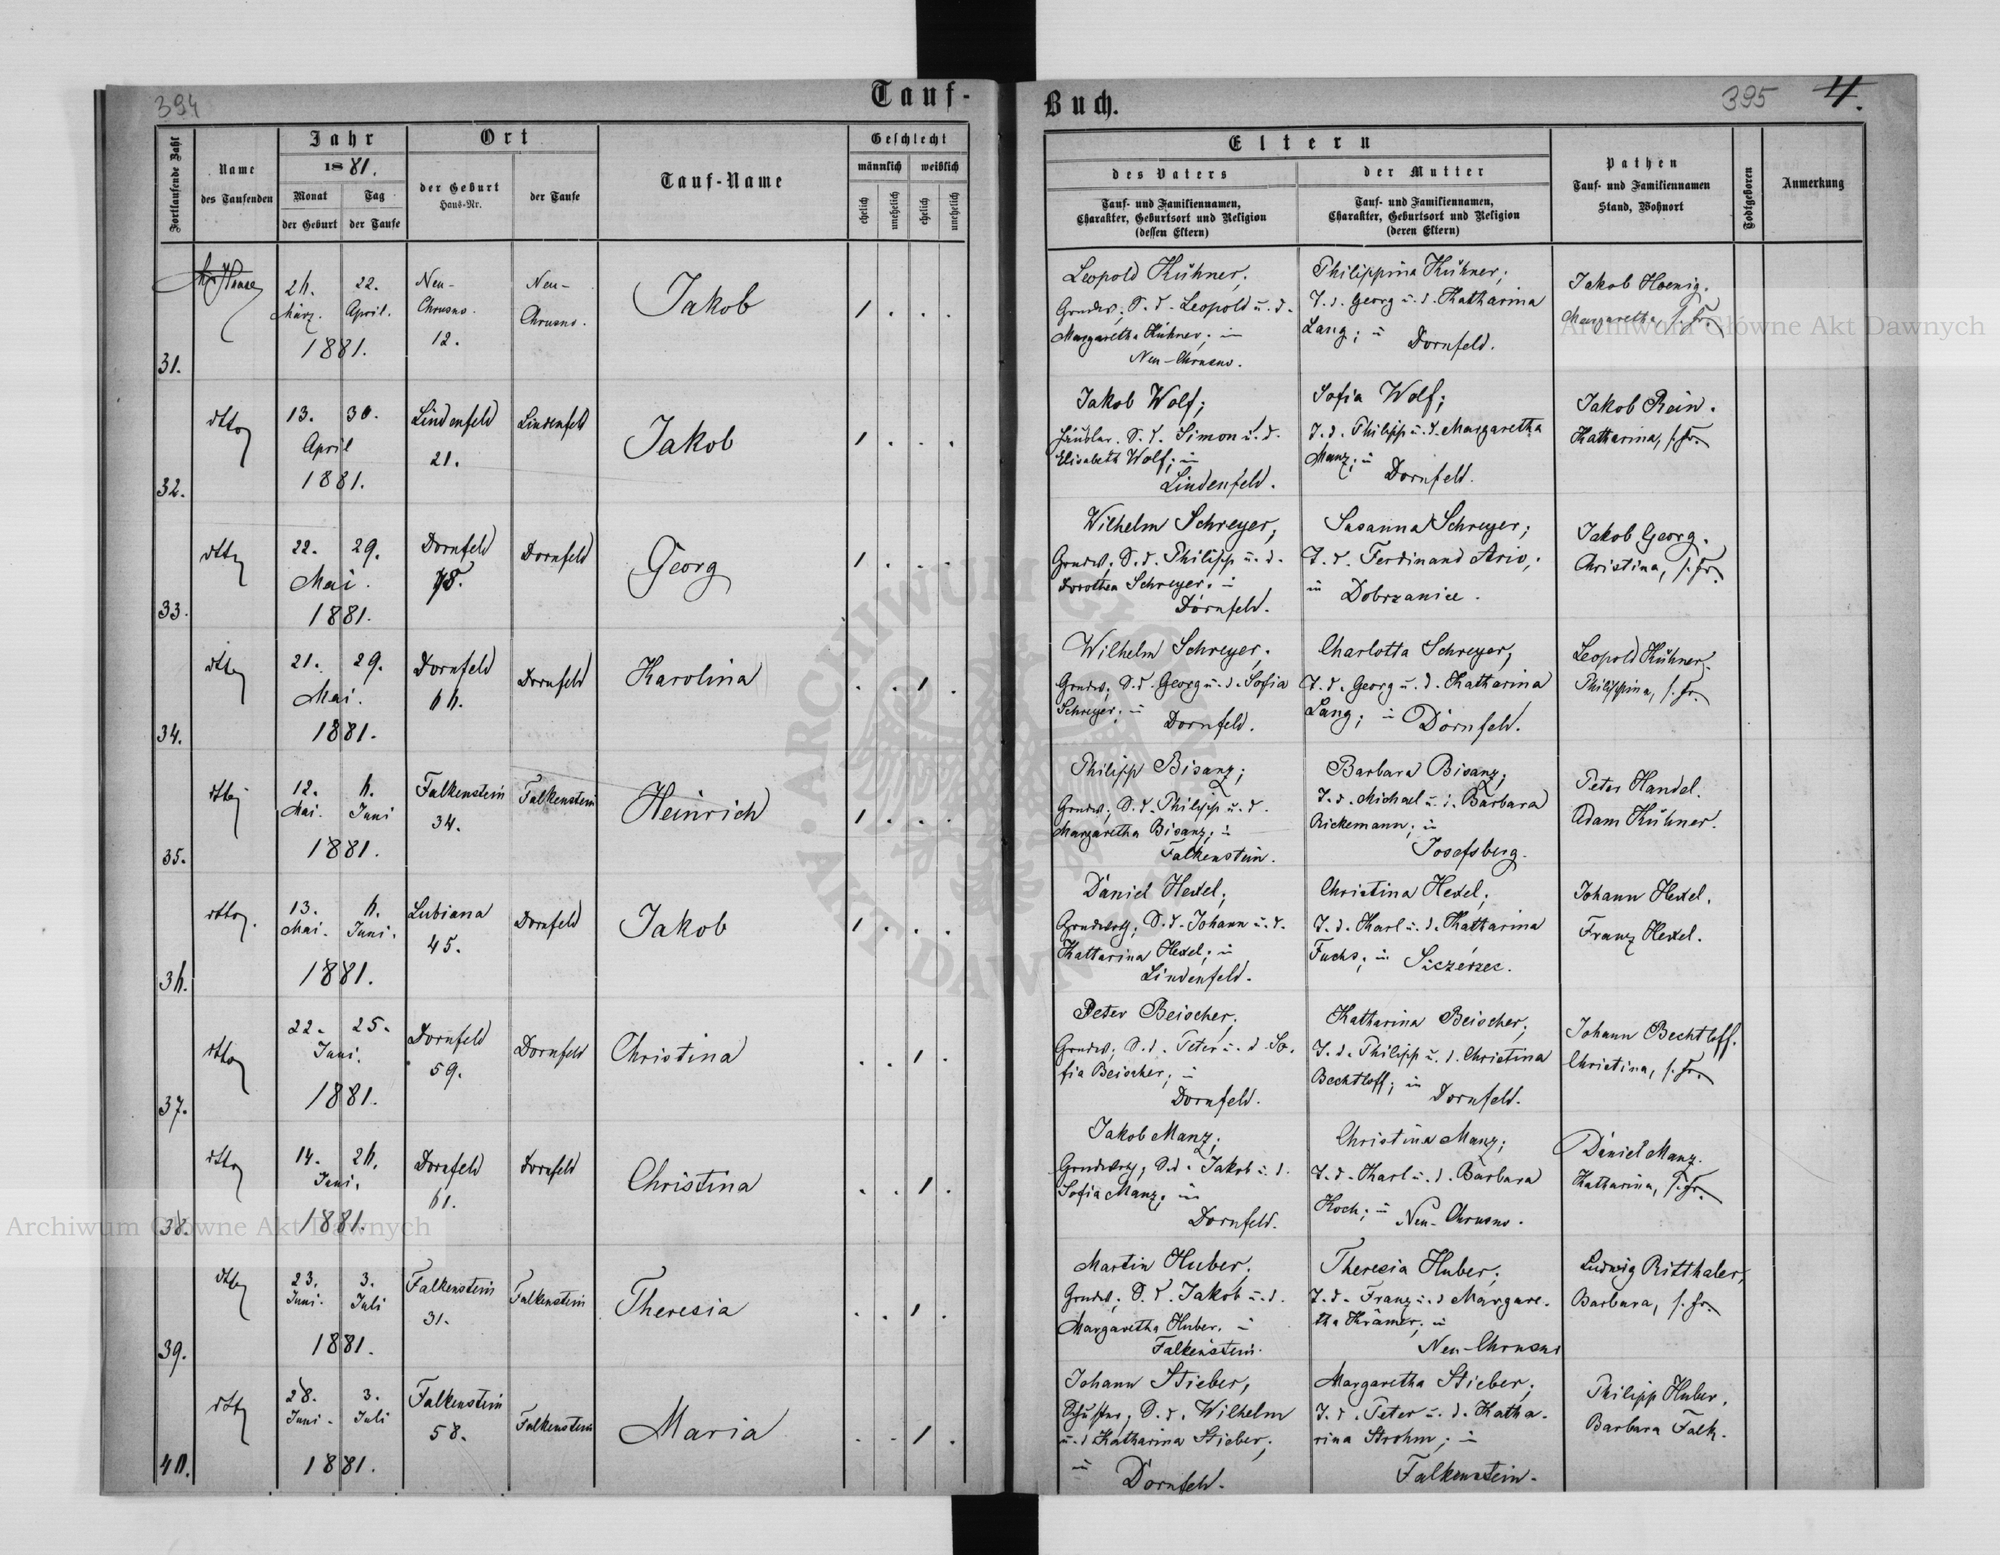 394
Tauf-
Fortlaufende Zahl
Name
des Taufenden
Jahr
1881.
Monat
der Geburt
Tag
der Taufe
Ort
der Geburt
Haus-Nr.
der Taufe
Tauf-Name
Geschlecht
männlich
weiblich
ehelich
unehelich
ehelich
unehelich
Buch.
395
4.
Eltern
des Vaters
Tauf- und Familiennamen,
Charakter, Geburtsort und Religion
(dessen Eltern)
der Mutter
Tauf- und Familiennamen,
Charakter, Geburtsort und Religion
(deren Eltern)
Pathen
Tauf- und Familiennamen
Stand, Wohnort
Todtgeboren
Anmerkung
31.
26. März.
22. April.
1881.
Neu-
Chrusno.
12.
Neu-
Chrusno.
Jakob
1
Leopold Kühner;
Grundw; S. d. Leopold u. d.
Margaretha Kühner; in
Neu-Chrusno.
Philippina Kühner;
T. d. Georg u. d. Katharina
Lang; in Dornfeld.
Jakob Hoenig.
Margaretha, s. Fr.
32.
dtto
13. 30.
April
1881.
Lindenfeld
21.
Lindenfeld
Jakob
1
Jakob Wolf;
Häusler. S. d. Simon u. d.
Elisabeth Wolf; in
Lindenfeld.
Sofia Wolf;
T. d. Philipp u. d. Margaretha
Manz; in Dornfeld.
Jakob Rein.
Katharina, s. Fr.
33.
dtto
22. 29.
Mai.
1881.
Dornfeld
Dornfeld
Georg
1
Wilhelm Schreyer;
Grundw; S. d. Philipp u. d.
Dorothea Schreyer; in
Dornfeld.
Susanna Schreyer;
T. d. Ferdinand Ario;
in Dobrzanice.
Jakob Georg.
Christina, s. Fr.
34.
dtto
21. 29.
Mai.
1881.
Dornfeld
66.
Dornfeld
Karolina
1
Wilhelm Schreyer;
Grundw; S. d. Georg u. d. Sofia
Schreyer; in
Dornfeld.
Charlotta Schreyer;
T. d. Georg u. d. Katharina
Lang; in Dornfeld.
Leopold Kühner.
Philippina, s. Fr.
35.
dtto
12. Mai.
6. Juni
1881.
Falkenstein
34.
Falkenstein
Heinrich
1
Philipp Bisanz;
Grundw; S. d. Philipp u. d.
Margaretha Bisanz; in
Falkenstein.
Barbara Bisanz;
T. d. Michael u. d. Barbara
Rickemann; in
Josefsberg.
Peter Handel.
Adam Kühner.
36.
dtto.
13. Mai.
6. Juni.
1881.
Lubiana
45.
Dornfeld
Jakob
1
Daniel Hexel;
Grundwrth; S. d. Johann u. d.
Katharina Hexel; in
Lindenfeld.
Christina Hexel;
T. d. Karl u. d. Katharina
Fuchs; in Szczerzec.
Johann Hexel.
Franz Hexel.
37.
dtto
22. 25.
Juni.
1881.
Dornfeld
59.
Dornfeld
Christina
1
Peter Beischer;
Grundw; S. d. Peter u. d. So-
fia Beischer; in
Dornfeld.
Katharina Beischer;
T. d. Philipp u. d. Christina
Bechtloff; in
Dornfeld.
Johann Bechtloff.
Christina, s. Fr.
38.
dtto
14. 26.
Juni.
1881.
Dornfeld
61.
Dornfeld
Christina
1
Jakob Manz;
Grundwrth; S. d. Jakob u. d.
Sofia Manz; in
Dornfeld.
Christina Manz;
T. d. Karl u. d. Barbara
Koch; in Neu-Chrusno.
Daniel Manz.
Katharina, s. Fr.
39.
dtto
23. Juni.
3. Juli
1881.
Falkenstein
31.
Falkenstein
Theresia
1
Martin Huber;
Grundw; S. d. Jakob u. d.
Margaretha Huber; in
Falkenstein.
Theresia Huber;
T. d. Franz u. d. Margare-
tha Krämer; in
Neu-Chrusno
Ludwig Ritthaler,
Barbara, s. Fr.
40.
dtto
28. Juni.
3. Juli
1881.
Falkenstein
58.
Falkenstein
Maria
1
Johann Stieber;
Schuster; S. d. Wilhelm
u. d. Katharina Stieber;
in Dornfeld.
Margaretha Stieber;
T. d. Peter u. d. Katha-
rina Strohm; in
Falkenstein.
Philipp Huber.
Barbara Falk.
Archiwum Główne Akt Dawnych
Archiwum Główne Akt Dawnych